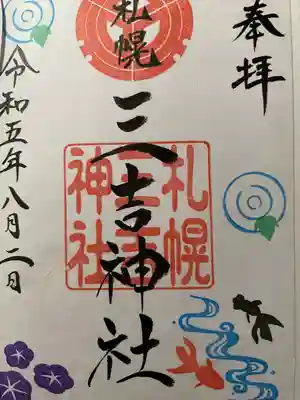 奉拝
札幌
三吉神社
札幌
三吉
神社
令和五年八月二日